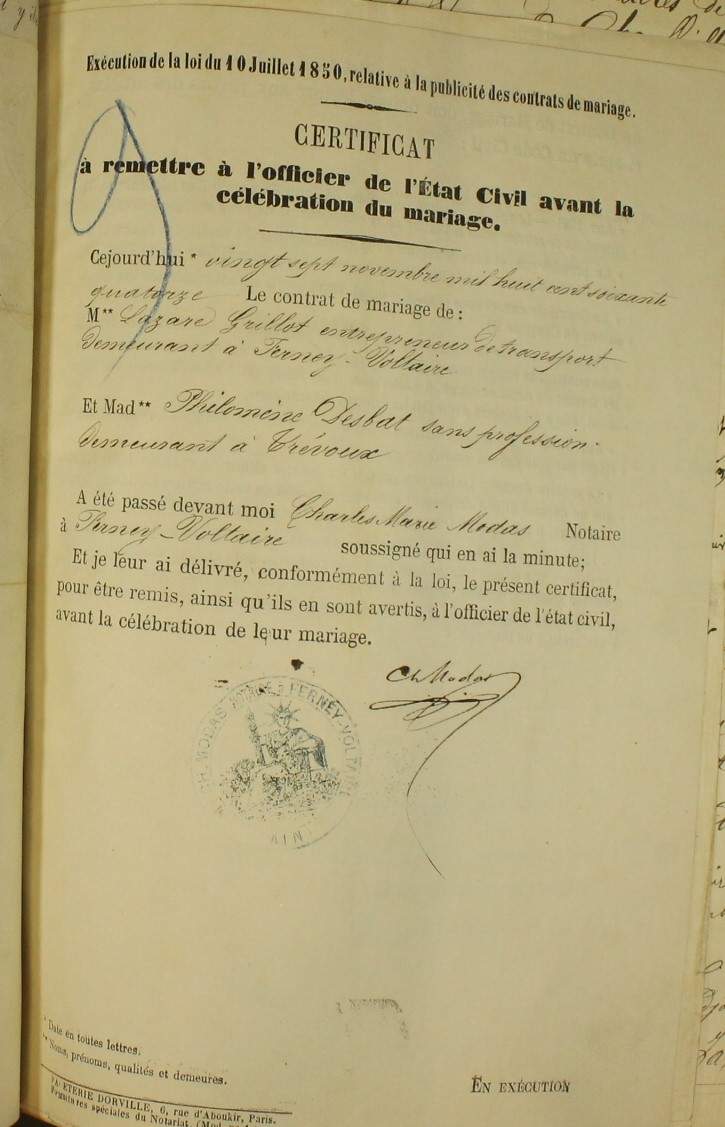 Exécution de la loi du 10 Juillet 1850, relative à la publicité des contrats de mariage.
CERTIFICAT
à remettre à l'officier de l'État Civil avant la
célébration du mariage.
Cejourd'hui * vingt sept novembre mil huit cent soixante
quatorze Le contrat de mariage de :
M** Lazare Grillot entrepreneur de transport
demeurant à Ferney-Voltaire
Et Mad** Philomène Desbat sans profession
demeurant à Trévoux
A été passé devant moi Charles Marie Modas Notaire
à Ferney-Voltaire soussigné qui en ai la minute;
Et je leur ai délivré, conformément à la loi, le présent certificat,
pour être remis, ainsi qu'ils en sont avertis, à l'officier de l'état civil,
avant la célébration de leur mariage.
Ch Modas
CH. MODAS FERNEY-VOLTAIRE
AIN
* Date en toutes lettres.
** Noms, prénoms, qualités et demeures.
PAPETERIE DORVILLE, 6, rue d'Aboukir, Paris.
Fournitures spéciales du Notariat.
EN EXÉCUTION